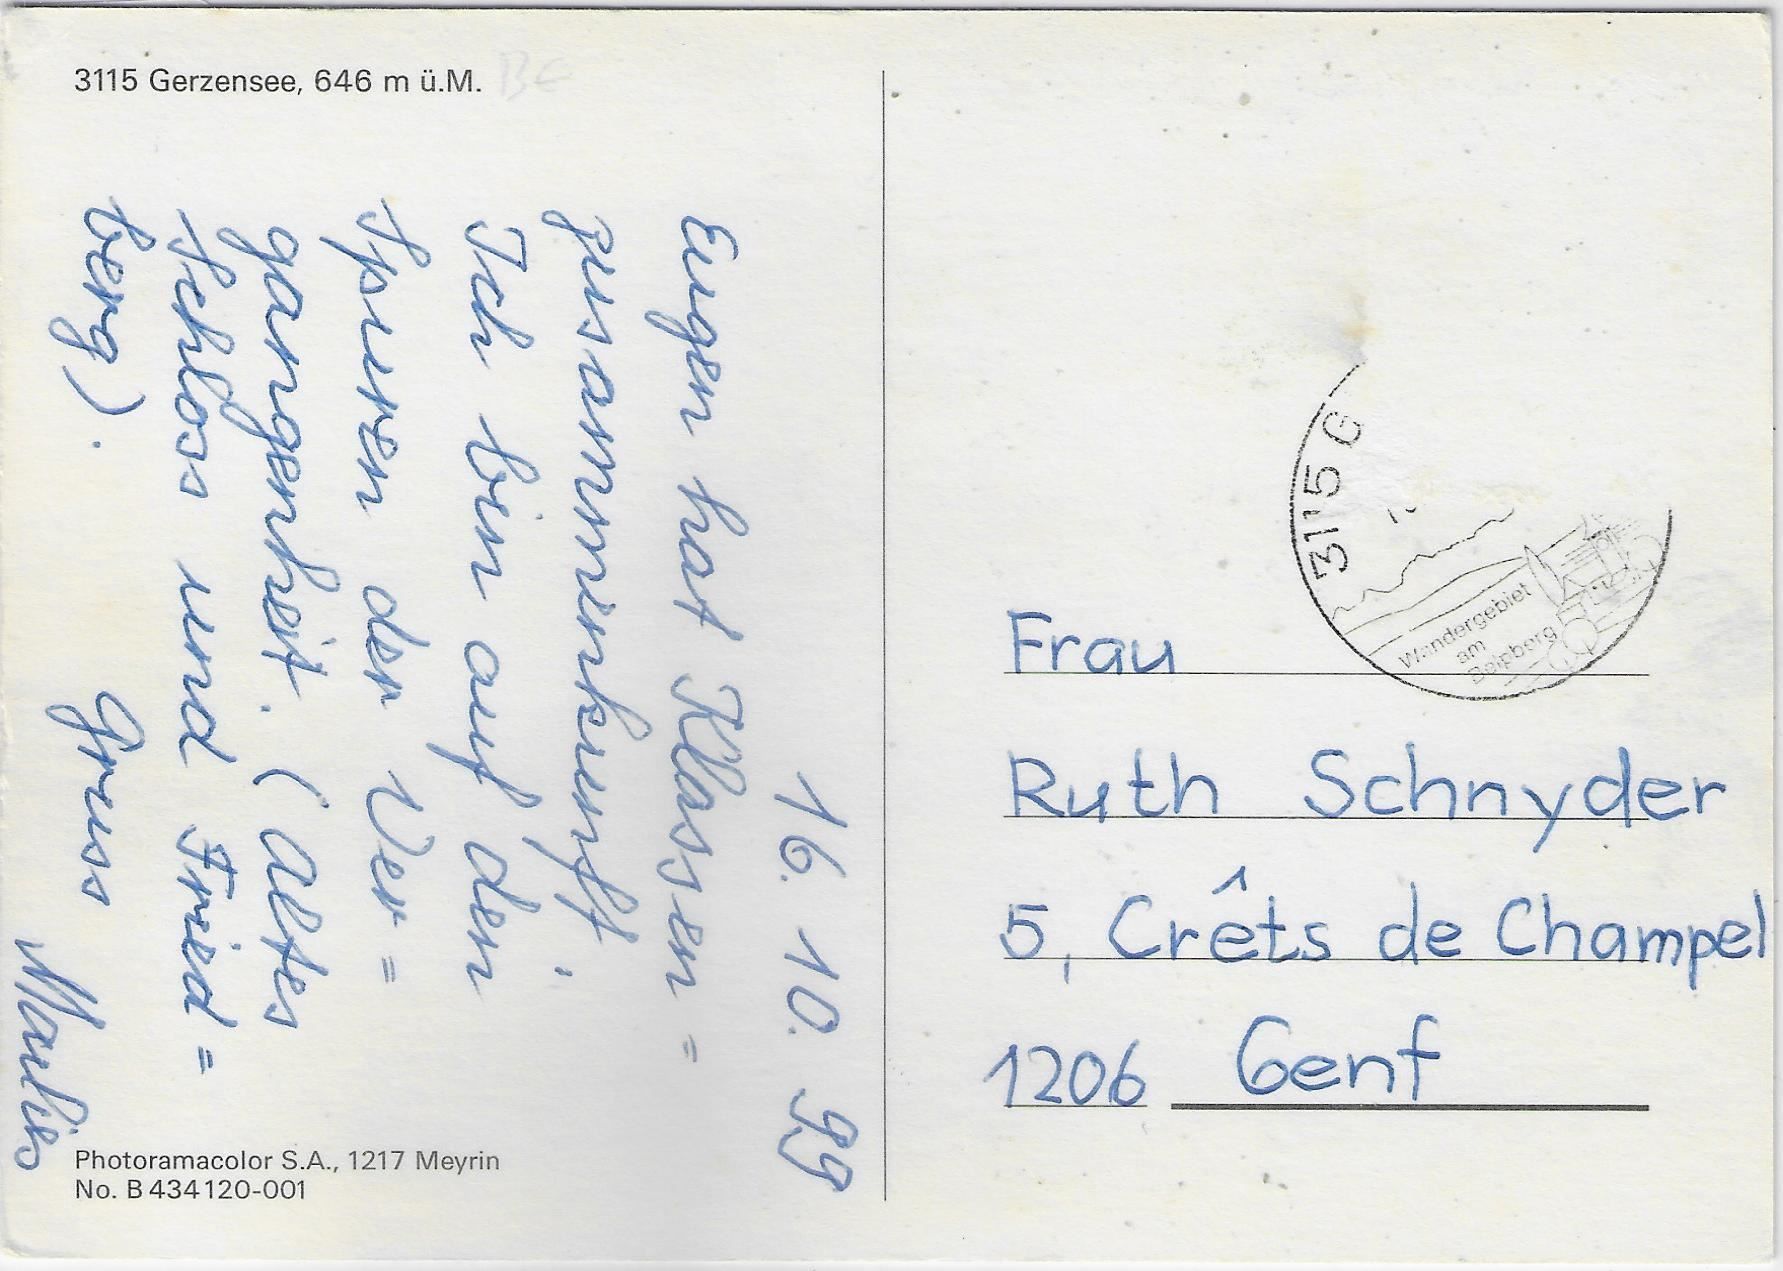 3115 Gerzensee, 646 m ü.M.
BE
16. 10. 99
Eugen hat Klassen=
zusammenkunft.
Ich bin auf den
Spuren der Ver=
gangenheit. (Altes
Schloss und Fried=
berg).
Gruss
Marlies
Photoramacolor S.A., 1217 Meyrin
No. B 434120-001
3115 G
Wandergebiet
am
Belpberg
Frau
Ruth Schnyder
5, Crêts de Champel
1206 Genf